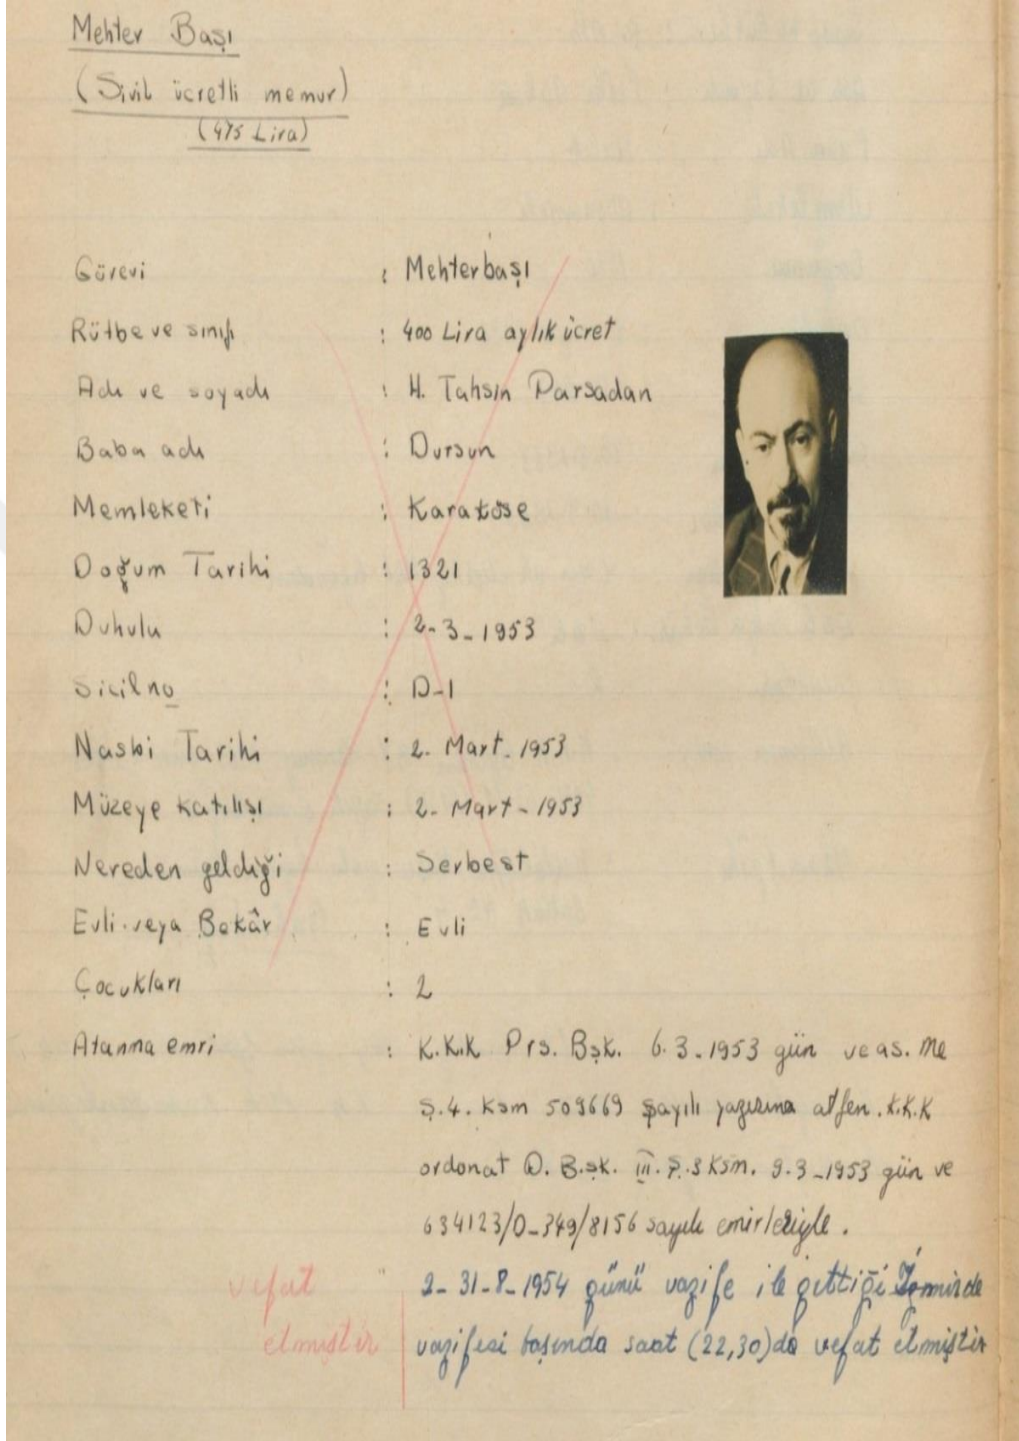 Mehter Başı
(Sivil ücretli memur)
(475 Lira)
Görevi : Mehterbaşı
Rütbe ve sınıfı : 400 Lira aylık ücret
Adı ve soyadı : H. Tahsin Parsadan
Baba adı : Dursun
Memleketi : Karaköse
Doğum Tarihi : 1321
Duhulu : 2-3-1953
Sicil no : D-1
Nasbi Tarihi : 2. Mart. 1953
Müzeye katılışı : 2. Mart - 1953
Nereden geldiği : Serbest
Evli veya Bekâr : Evli
Çocukları : 2
Atanma emri : K.K.K Prs. Bşk. 6.3.1953 gün ve as. Me
Ş.4. Ksm 509669 sayılı yazısına atfen. K.K.K
ordonat D. B.şk. III. Ş.3 Ksm. 9.3-1953 gün ve
634123/0-349/8156 sayılı emirleriyle.
vefat " 2-31-8-1954 günü vazife ile gittiği İzmirde
etmiştir vazifesi başında saat (22,30)da vefat etmiştir